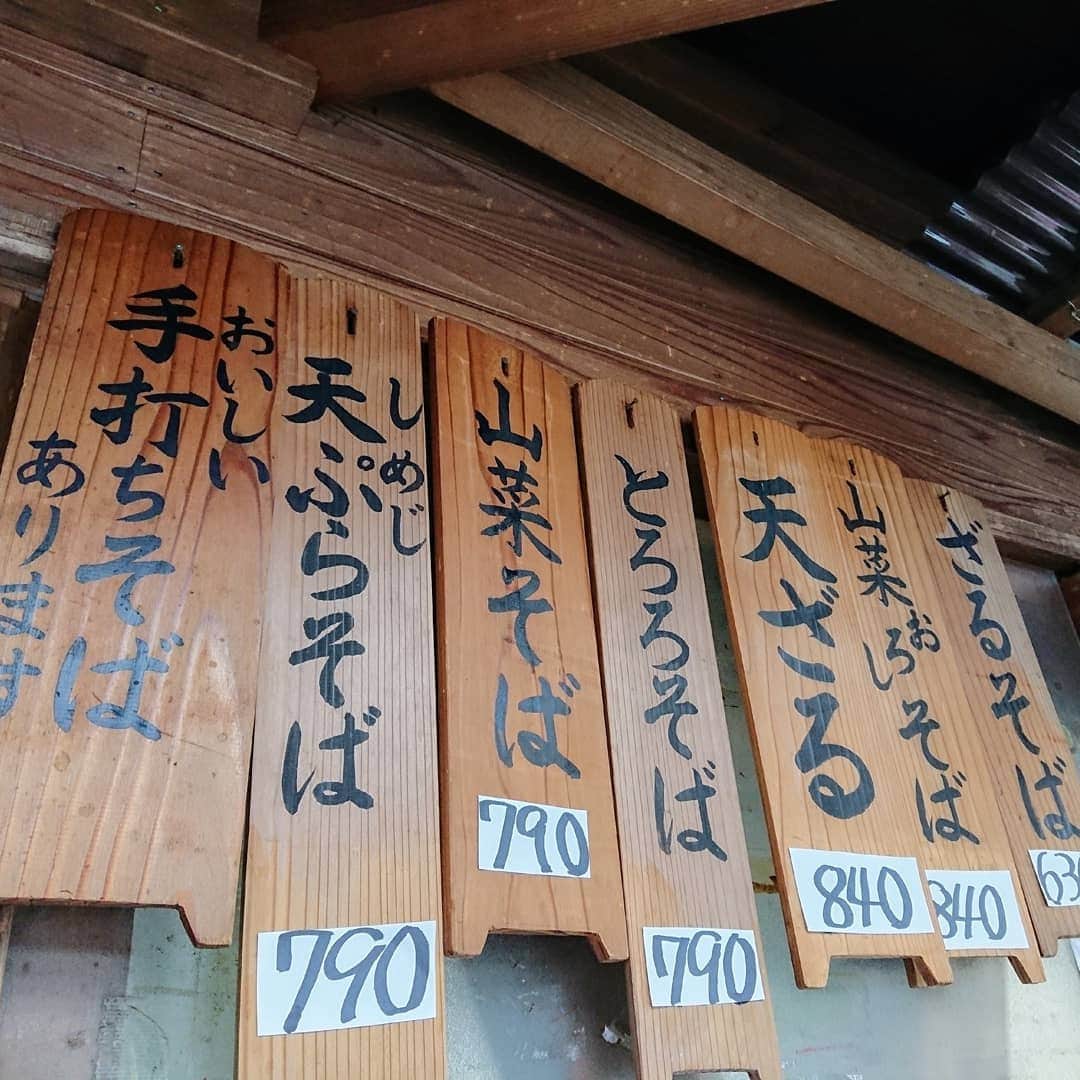 おいしい
手打ちそば
あります
しめじ
天ぷらそば
790
山菜そば
790
とろろそば
790
天ざる
840
山菜おろしそば
840
ざるそば